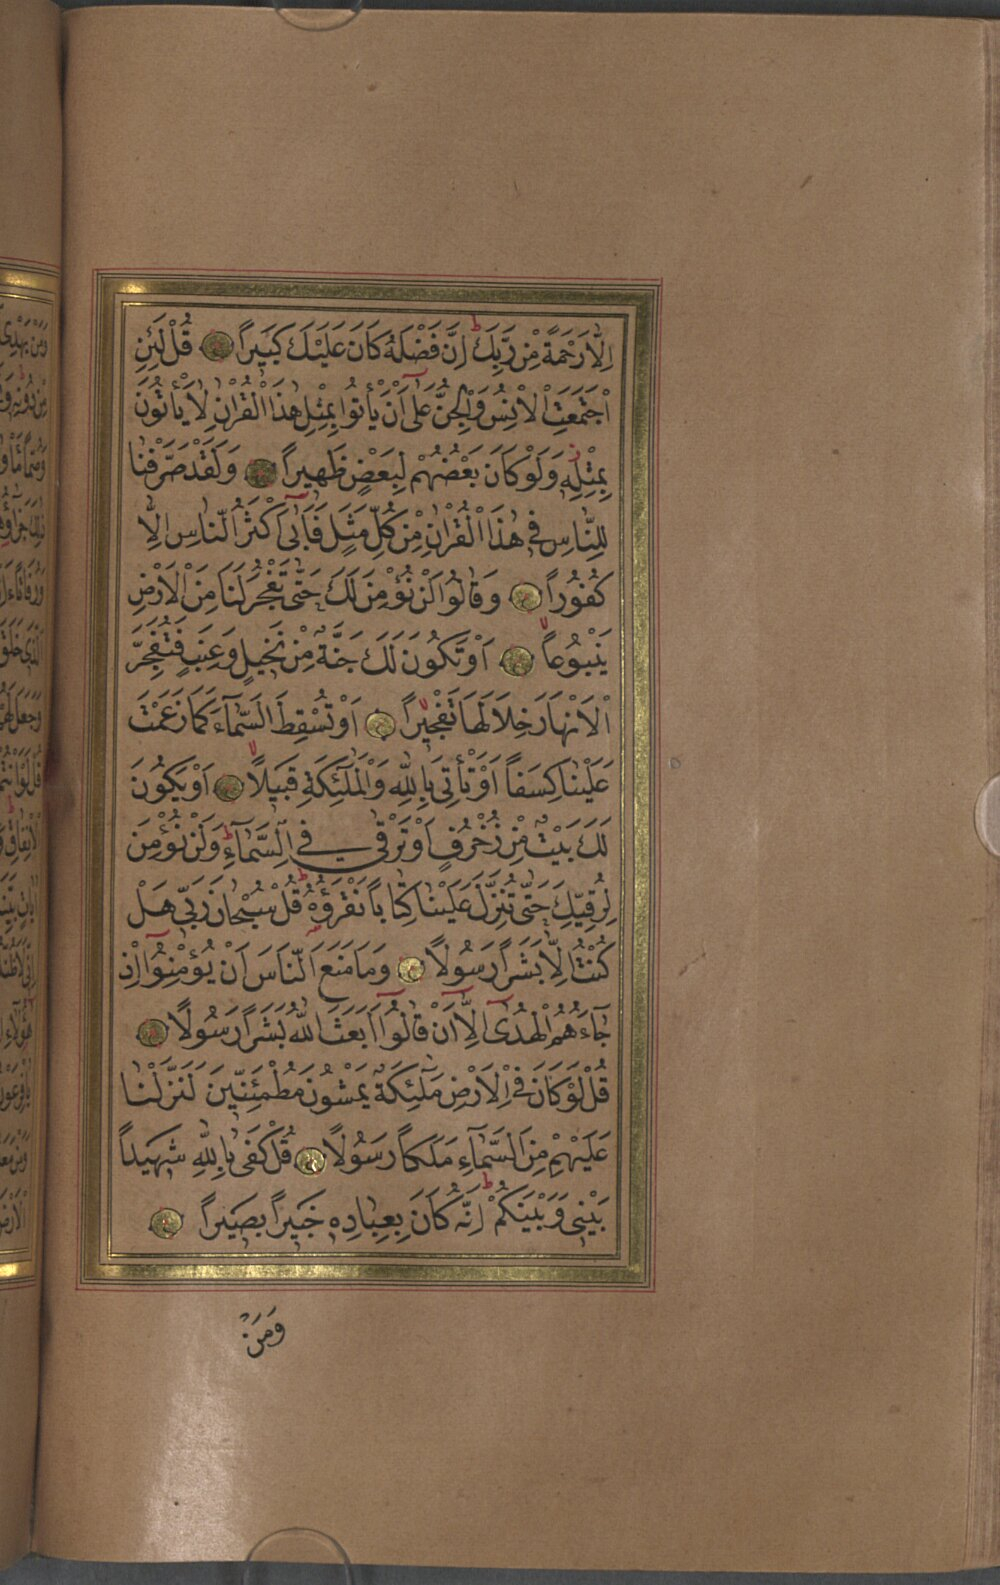 اِلَّا رَحْمَةً مِنْ رَبِّكَ اِنَّ فَضْلَهُ كَانَ عَلَيْكَ كَبيراً قُلْ لَئِنِ
اجْتَمَعَتِ الْاِنْسُ وَالْجِنُّ عَلٰٓى اَنْ يَأْتُوا بِمِثْلِ هٰذَا الْقُرْاٰنِ لَا يَأْتُونَ
بِمِثْلِه وَلَوْ كَانَ بَعْضُهُمْ لِبَعْضٍ ظَهيراً وَلَقَدْ صَرَّفْنَا
لِلنَّاسِ في هٰذَا الْقُرْاٰنِ مِنْ كُلِّ مَثَلٍ فَاَبٰٓى اَكْثَرُ النَّاسِ اِلَّا
كُفُوراً وَقَالُوا لَنْ نُؤْمِنَ لَكَ حَتّٰى تَفْجُرَ لَنَا مِنَ الْاَرْضِ
يَنْبُوعاً اَوْ تَكُونَ لَكَ جَنَّةٌ مِنْ نَخيلٍ وَعِنَبٍ فَتُفَجِّرَ
الْاَنْهَارَ خِلَالَهَا تَفْجيراً اَوْ تُسْقِطَ السَّمَآءَ كَمَا زَعَمْتَ
عَلَيْنَا كِسَفاً اَوْ تَأْتِيَ بِاللّٰهِ وَالْمَلٰٓئِكَةِ قَبيلاً اَوْ يَكُونَ
لَكَ بَيْتٌ مِنْ زُخْرُفٍ اَوْ تَرْقٰى فِي السَّمَآءِ وَلَنْ نُؤْمِنَ
لِرُقِيِّكَ حَتّٰى تُنَزِّلَ عَلَيْنَا كِتَاباً نَقْرَؤُهُ قُلْ سُبْحَانَ رَبّي هَلْ
كُنْتُ اِلَّا بَشَراً رَسُولاً وَمَا مَنَعَ النَّاسَ اَنْ يُؤْمِنُٓوا اِذْ
جَآءَهُمُ الْهُدٰٓى اِلَّٓا اَنْ قَالُٓوا اَبَعَثَ اللّٰهُ بَشَراً رَسُولاً
قُلْ لَوْ كَانَ فِي الْاَرْضِ مَلٰٓئِكَةٌ يَمْشُونَ مُطْمَئِنّينَ لَنَزَّلْنَا
عَلَيْهِمْ مِنَ السَّمَآءِ مَلَكاً رَسُولاً قُلْ كَفٰى بِاللّٰهِ شَهيداً
بَيْني وَبَيْنَكُمْ اِنَّهُ كَانَ بِعِبَادِه خَبيراً بَصيراً
وَمَنْ